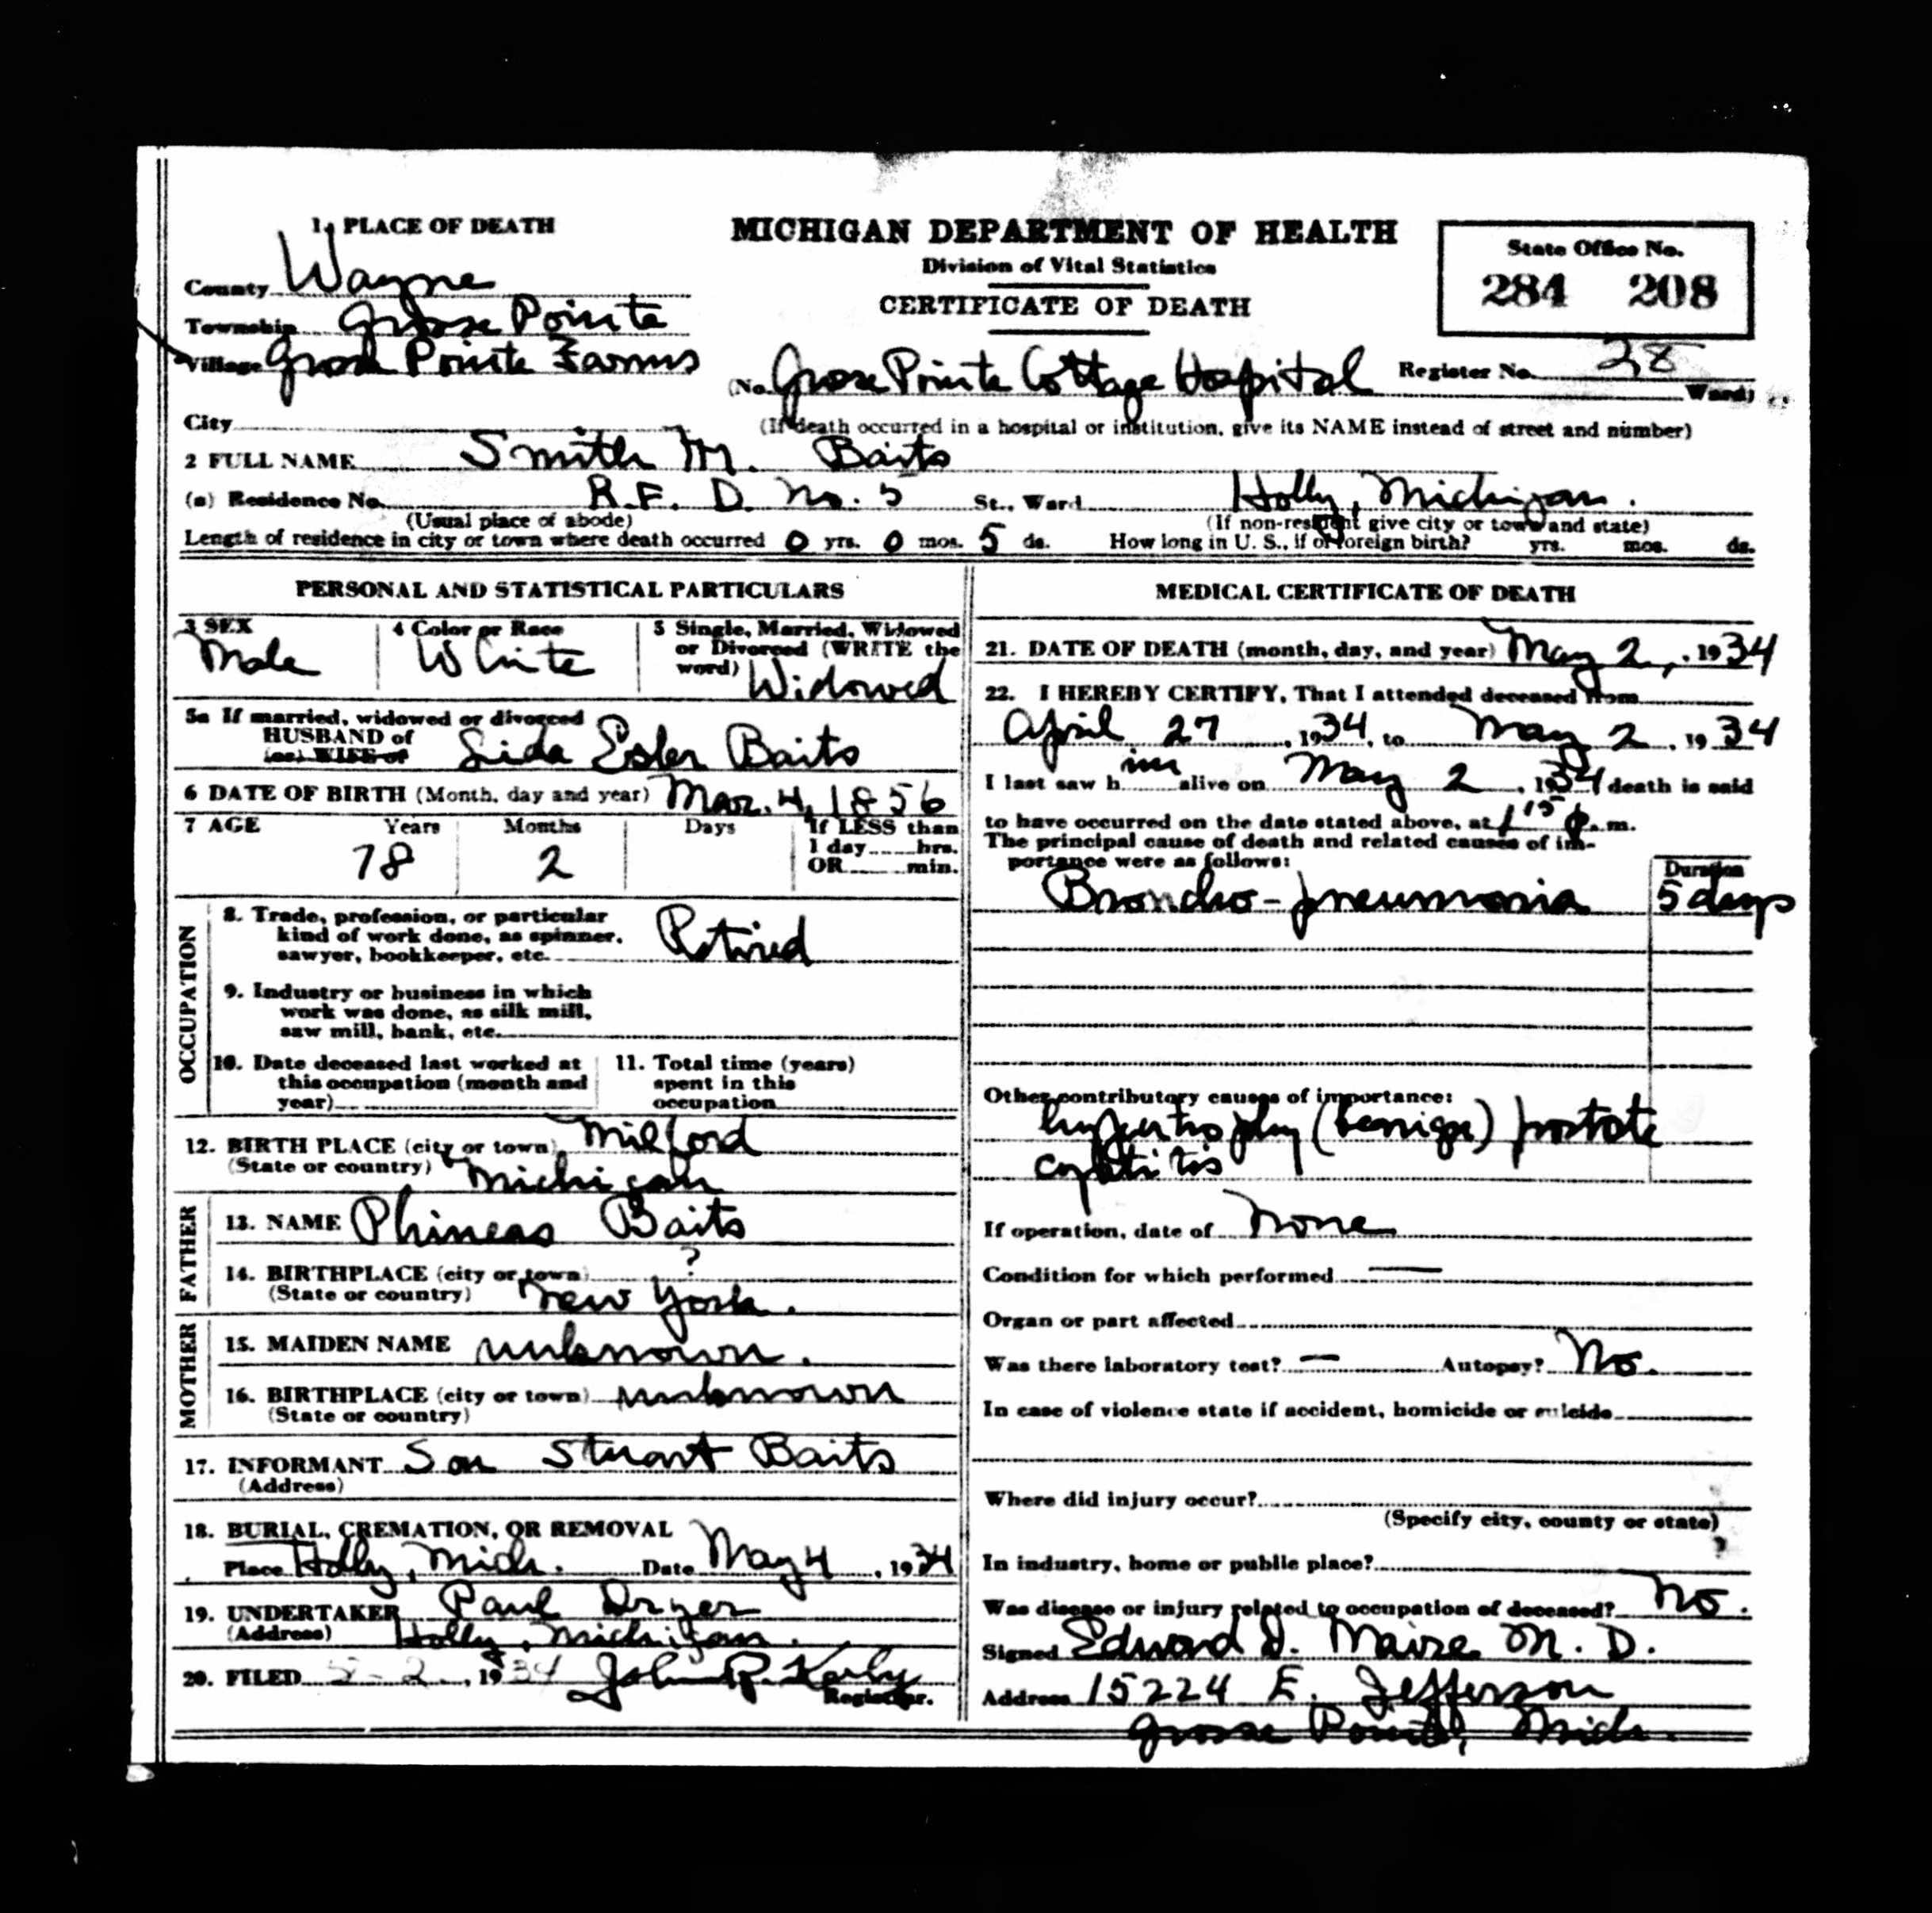 1. PLACE OF DEATH
MICHIGAN DEPARTMENT OF HEALTH
Division of Vital Statistics
CERTIFICATE OF DEATH
State Office No.
284 208
County Wayne
Township Grosse Pointe
Village Grosse Pointe Farms
(No. Grosse Pointe Cottage Hospital
Register No. 28
Ward)
City
(If death occurred in a hospital or institution, give its NAME instead of street and number)
2 FULL NAME Smith M. Baits
(a) Residence No. R.F.D. No. 5 St., Ward Holly, Michigan.
(Usual place of abode) (If non-resident give city or town and state)
Length of residence in city or town where death occurred 0 yrs. 0 mos. 5 ds. How long in U. S., if of foreign birth? yrs. mos. ds.
PERSONAL AND STATISTICAL PARTICULARS
3 SEX
Male
4 Color or Race
White
5 Single, Married, Widowed
or Divorced (WRITE the
word) Widowed
5a If married, widowed or divorced
HUSBAND of
(or) WIFE of Lida Esler Baits
6 DATE OF BIRTH (Month, day and year) Mar. 4, 1856
7 AGE Years Months Days If LESS than
1 day hrs.
OR min.
78 2
OCCUPATION
8. Trade, profession, or particular
kind of work done, as spinner,
sawyer, bookkeeper, etc. Retired
9. Industry or business in which
work was done, as silk mill,
saw mill, bank, etc.
10. Date deceased last worked at
this occupation (month and
year)
11. Total time (years)
spent in this
occupation
12. BIRTH PLACE (city or town) Milford
(State or country) Michigan
FATHER
13. NAME Phineas Baits
14. BIRTHPLACE (city or town) ?
(State or country) New York.
MOTHER
15. MAIDEN NAME unknown.
16. BIRTHPLACE (city or town) unknown
(State or country)
17. INFORMANT Son Stuart Baits
(Address)
18. BURIAL, CREMATION, OR REMOVAL
Place Holly, Mich. Date May 4, 1934
19. UNDERTAKER Paul Dryer
(Address) Holly, Michigan.
20. FILED 5-2, 1934 John R. Kerby
Registrar.
MEDICAL CERTIFICATE OF DEATH
21. DATE OF DEATH (month, day, and year) May 2, 1934
22. I HEREBY CERTIFY, That I attended deceased from
April 27, 1934, to May 2, 1934
I last saw him alive on May 2, 1934 death is said
to have occurred on the date stated above, at 1 15 P. m.
The principal cause of death and related causes of im-
portance were as follows:
Duration
Broncho-pneumonia 5 days
Other contributory causes of importance:
hypertrophy (benign) prostate
cystitis
If operation, date of None
Condition for which performed —
Organ or part affected
Was there laboratory test? — Autopsy? No.
In case of violence state if accident, homicide or suicide
Where did injury occur?
(Specify city, county or state)
In industry, home or public place?
Was disease or injury related to occupation of deceased? No.
Signed Edward D. Maire M. D.
Address 15224 E. Jefferson
Grosse Pointe, Mich.